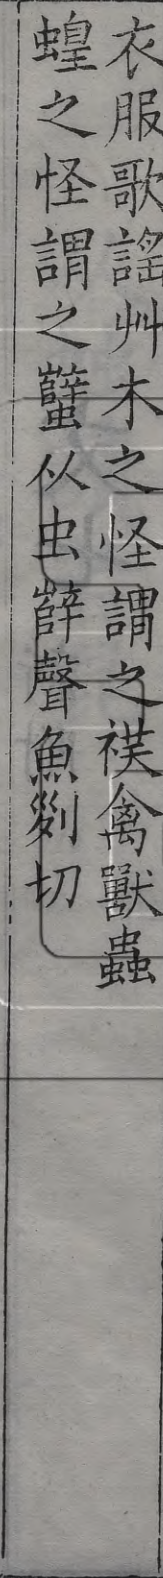 衣服歌謡艸木之怪謂之䄏禽獸蟲
蝗之怪謂之蠥从虫辥聲魚列切